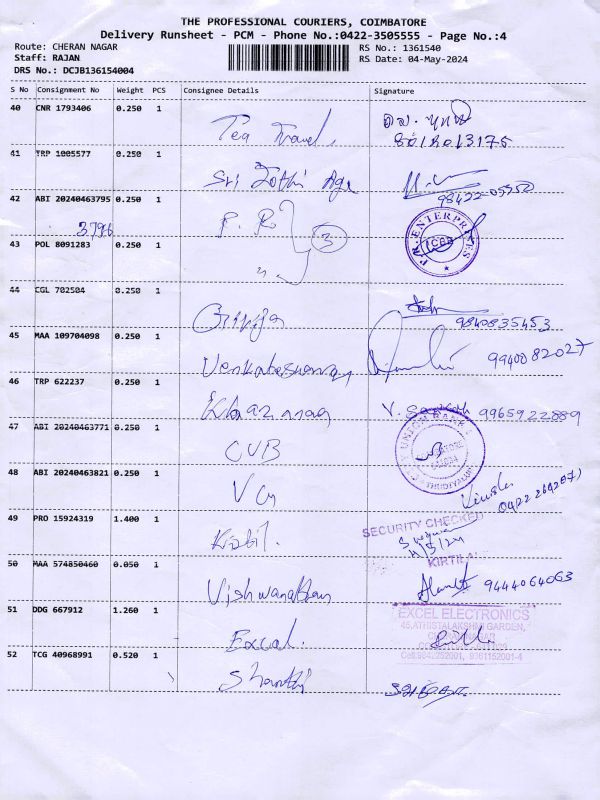 THE PROFESSIONAL COURIERS, COIMBATORE
Delivery Runsheet - PCM - Phone No.:0422-3505555 - Page No.:4
Route: CHERAN NAGAR
RS No.: 1361540
Staff: RAJAN
RS Date: 04-May-2024
DRS No.: DCJB136154004
S No Consignment No Weight PCS Consignee Details Signature
40 CNR 1793406 0.250 1
Tea Travel
41 TRP 1005577 0.250 1
Sri Jothi
42 ABI 20240463795 0.250 1
3796
P. R
3
P.R. ENTERPRISES
43 POL 8091283 0.250 1
44 CGL 702504 0.250 1
Girija
9840835453
45 MAA 109704098 0.250 1
Venkateswaran
9940082027
46 TRP 622237 0.250 1
9965922889
47 ABI 20240463771 0.250 1
CUB
UNION BANK
48 ABI 20240463821 0.250 1
V Cy
49 PRO 15924319 1.400 1
SECURITY CHECKED
4/5/24
KIRTILAL
50 MAA 574850460 0.050 1
Vishwanathan
9444064063
51 DDG 667912 1.260 1
Excel.
EXCEL ELECTRONICS
45,ATHISTALAKSHMI GARDEN,
52 TCG 40968991 0.520 1
Shanthi